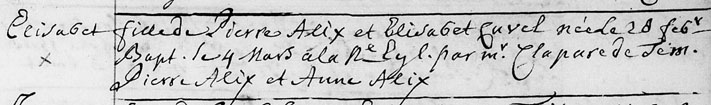 Elisabet fille de Pierre Alix et Elisabet Cuvel née le 28 febr
x Bapt. le 4 Mars a la Ne Egl. par mr. Claparede Tém.
Pierre Alix et Anne Alix